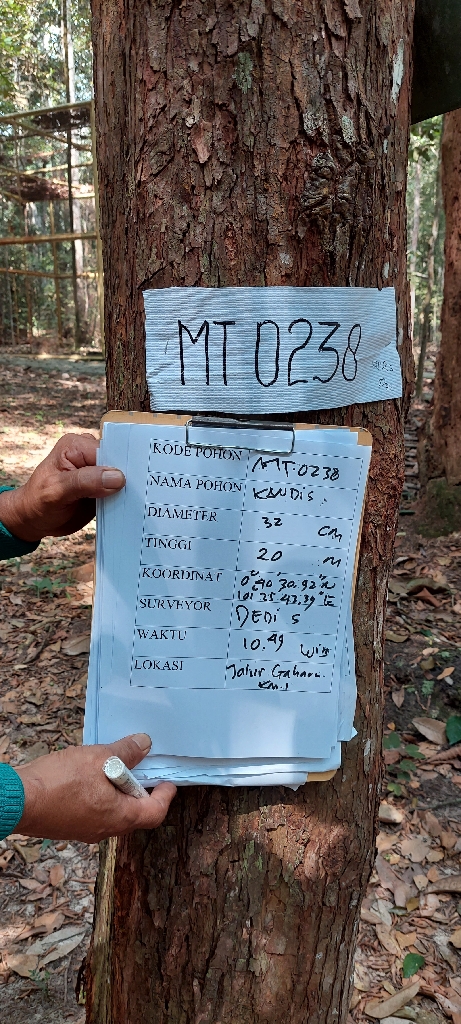 MT 0238
KODE POHON MT.0238
NAMA POHON KANDIS.
DIAMETER 32 cm
TINGGI 20 m
KOORDINAT 0° 40' 30.92" N
101° 35' 43.39" E
SURVEYOR DEDI S
WAKTU 10.49 WIB
LOKASI Jahir Gaharu.
KM.1